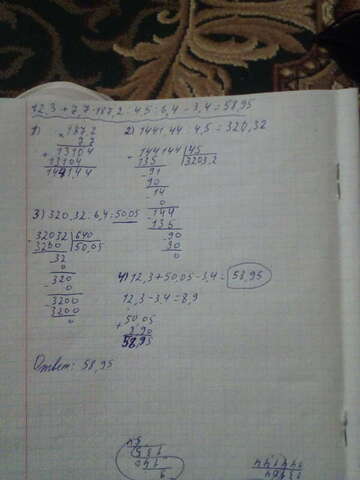 12,3 + 7,7 · 187,2 : 4,5 : 6,4 - 3,4 = 58,95
1) × 187,2
7,7
+ 13104
13104
1441,44
2) 1441,44 : 4,5 = 320,32
- 144144 | 45
135 | 3203,2
- 91
90
- 14
0
- 144
- 135
- 90
90
0
3) 320,32 : 6,4 = 50,05
- 32032 | 640
3200 | 50,05
32
0
- 320
0
- 3200
3200
0
4) 12,3 + 50,05 - 3,4 = 58,95
12,3 - 3,4 = 8,9
+ 50 05
8,90
58,95
Ответ: 58,95